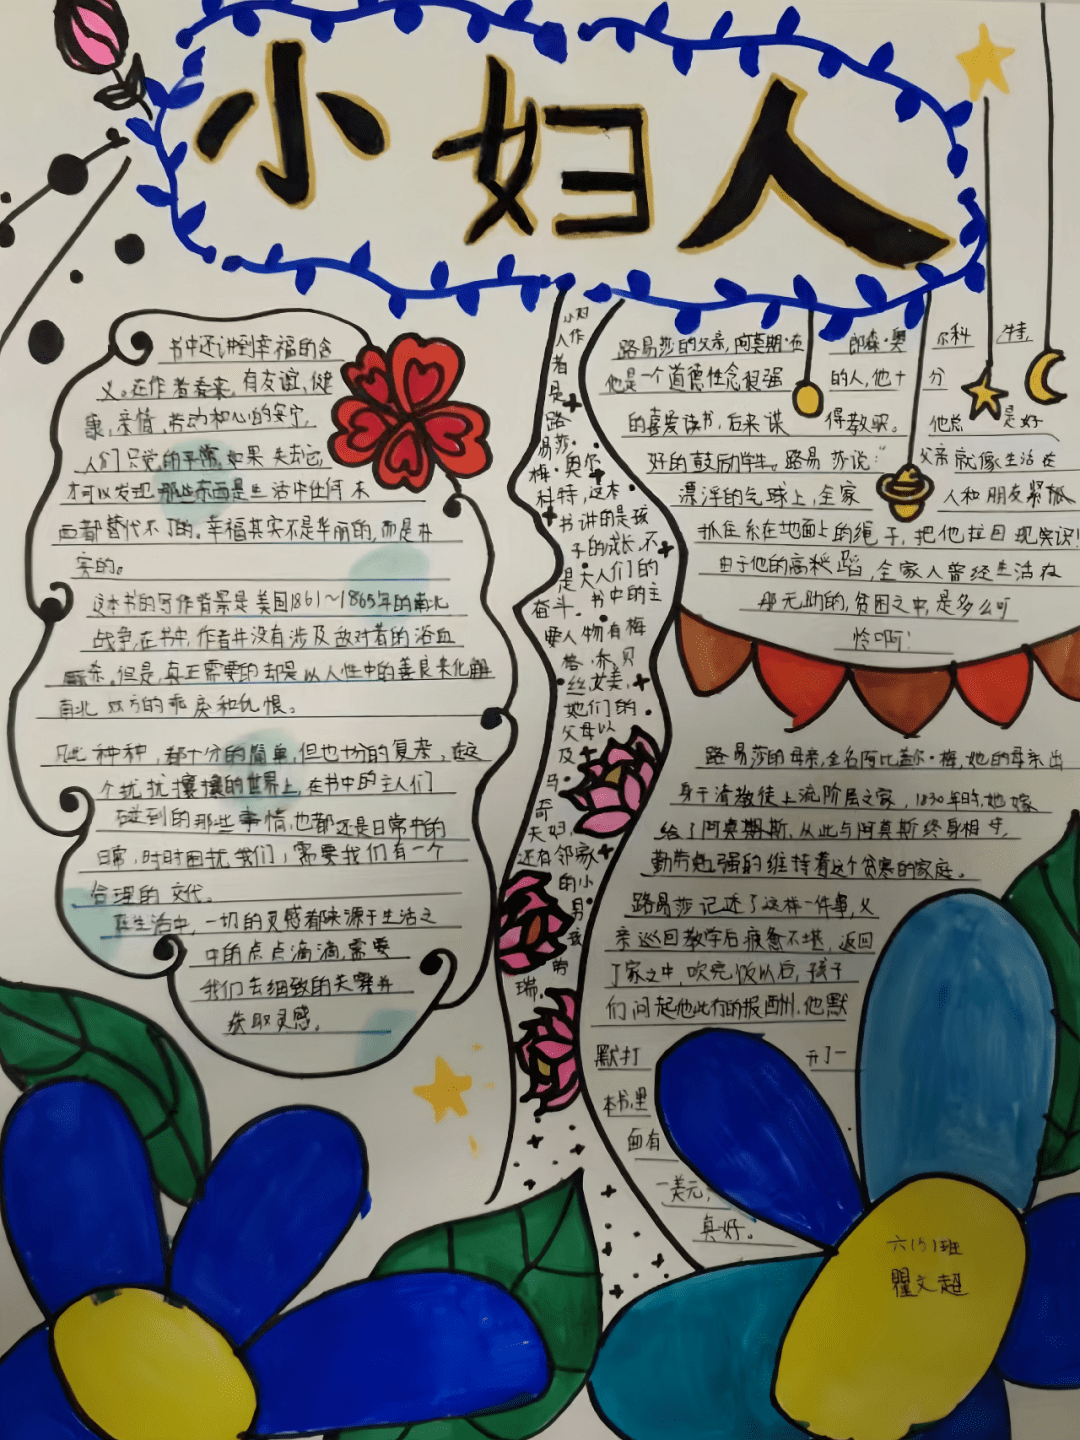 小妇人
书中还讲到幸福的含
义。在作者看来,有友谊、健
康、亲情、劳动和心的安宁,
人们只觉的平常。如果失去它,
才可以发现那些东西是生活中任何东
西都替代不了的。幸福其实不是华丽的,而是朴
实的。
这本书的写作背景是美国1861～1865年的南北
战争,在书中,作者并没有涉及敌对着的浴血
杀。但是,真正需要的却是以人性中的善良来化解
南北双方的乖戾和仇恨。
凡此种种,都十分的简单,但也十分的复杂,在这
个扰扰攘攘的世界上,在书中的主人们
碰到的那些事情,也都还是日常中的
日常,时时困扰我们,需要我们有一个
合理的交代。
在生活中,一切的灵感都来源于生活之
中的点点滴滴,需要
我们去细致的并
获取灵感。
小妇
人作
者
是
路
易莎·
梅·奥尔
科特,这本
书讲的是孩
子的成长,不
是大人们的
奋斗。书中的主
要人物有梅
格、乔、贝
丝、艾美,
她们的
父母以
及
马
奇
夫妇,
还有邻家
的小
男孩
的
瑞,
路易莎的父亲,阿莫期·布 郎森·奥 尔科 特,
他是一个道德性念很强 的人,他十 分
的喜爱读书,后来谋 得教职。 他总 是好
好的鼓励学生。路易莎说:“ 父亲就像生活在
漂浮的气球上,全家 人和朋友紧抓
抓住系在地面上的绳子,把他拉回现实识!
由于他的高蹈,全家人曾经生活在
那无助的,贫困之中,是多么可
怜啊!
路易莎的母亲,全名阿比盖尔·梅,她的母亲出
身于清教徒上流阶层之家,1830年时,她嫁
给了阿莫期斯,从此与阿莫斯终身相守,
勤劳勉强的维持着这个贫寒的家庭。
路易莎记述了这样一件事,父
亲巡回教学后疲惫不堪,返回
了家之中,吹完饭以后,孩子
们问起他此行的报酬州,他默
默打 开了一
本书,里
面有
一美元,
真好。
六(5)班
瞿文超